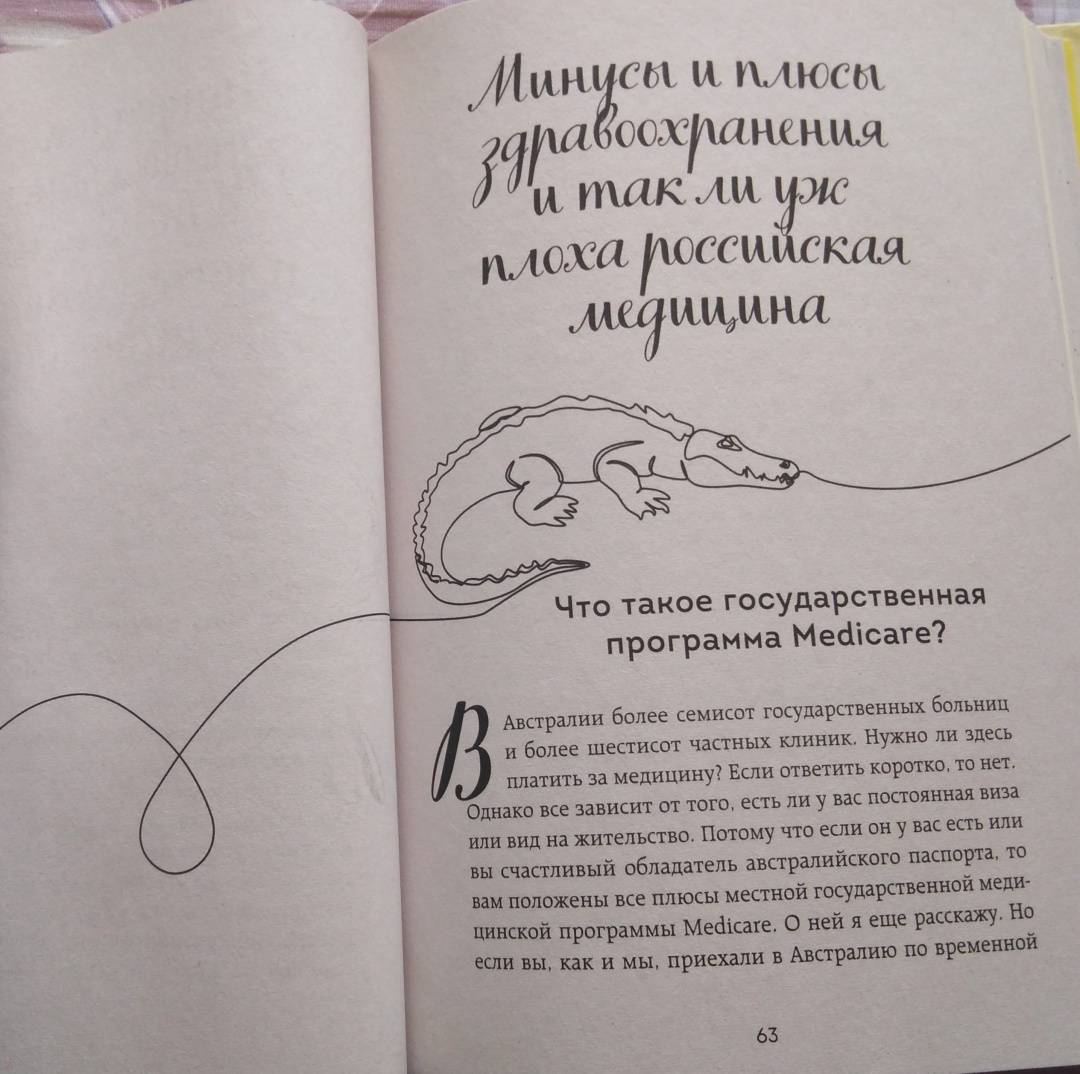 Минусы и плюсы
здравоохранения
и так ли уж
плоха российская
медицина
Что такое государственная
программа Medicare?
В Австралии более семисот государственных больниц
и более шестисот частных клиник. Нужно ли здесь
платить за медицину? Если ответить коротко, то нет.
Однако все зависит от того, есть ли у вас постоянная виза
или вид на жительство. Потому что если он у вас есть или
вы счастливый обладатель австралийского паспорта, то
вам положены все плюсы местной государственной меди-
цинской программы Medicare. О ней я еще расскажу. Но
если вы, как и мы, приехали в Австралию по временной
63